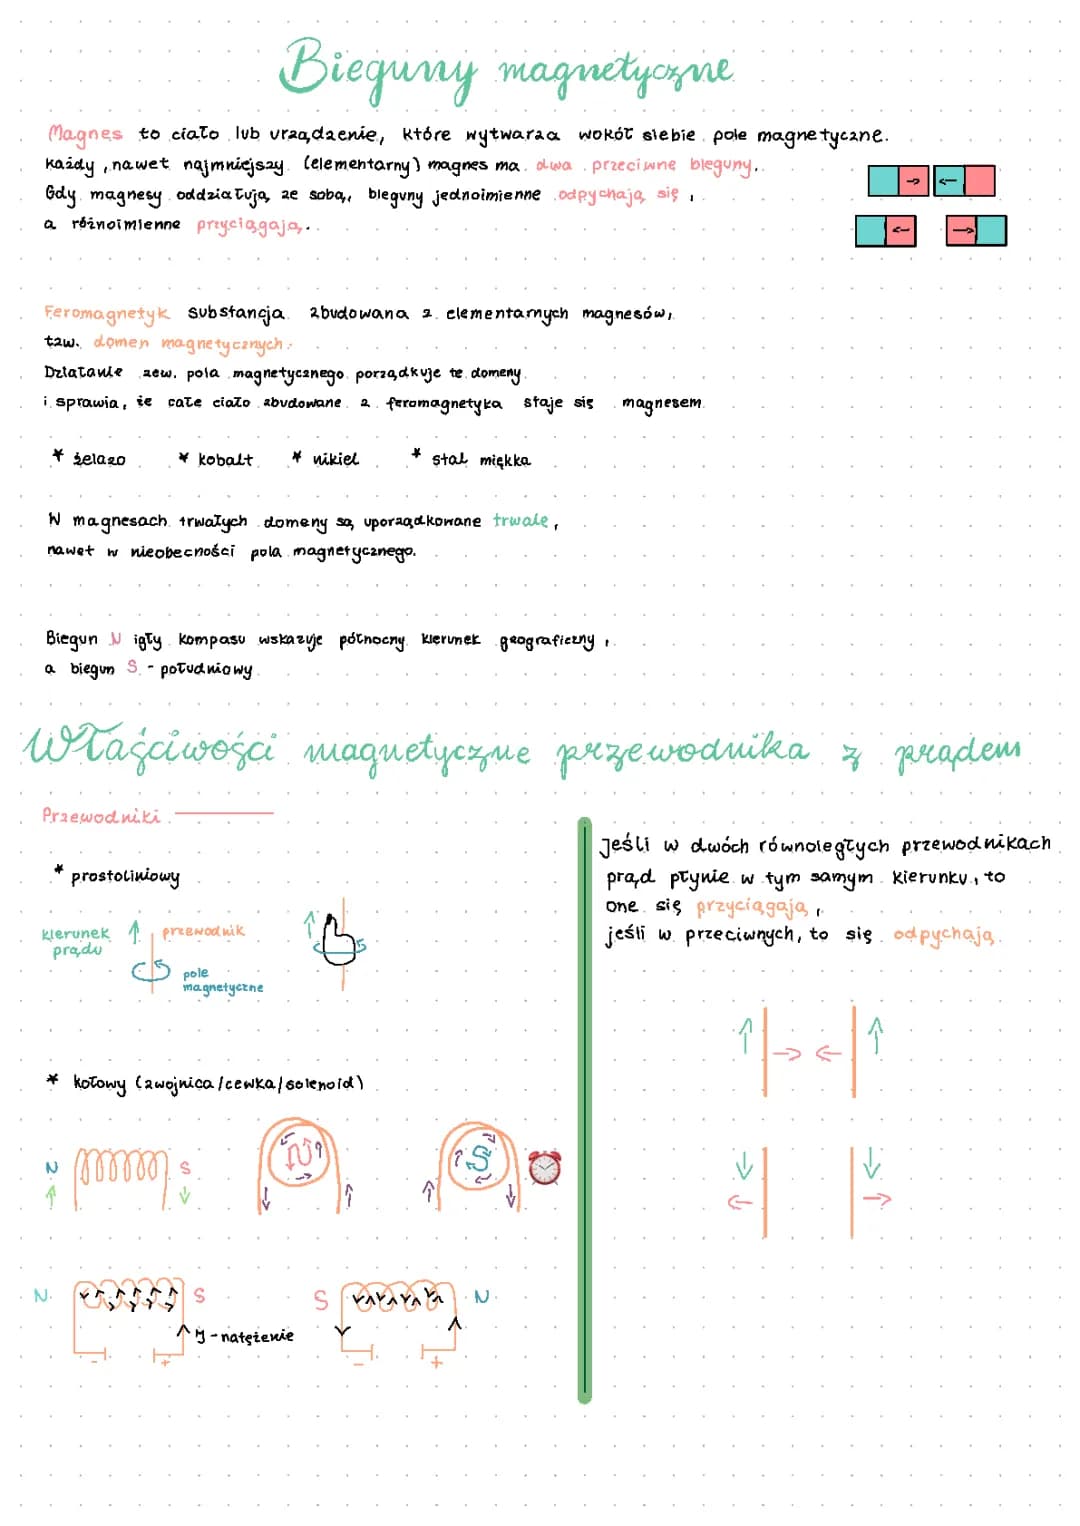 Bieguny magnetyczne
Magnes to ciało lub urządzenie, które wytwarza wokół siebie pole magnetyczne.
Każdy, nawet najmniejszy (elementarny) magnes ma dwa przeciwne bieguny.
Gdy magnesy oddziałują ze sobą, bieguny jednoimienne odpychają się,
a różnoimienne przyciągają.
Feromagnetyk substancja zbudowana z elementarnych magnesów,
tzw. domen magnetycznych.
Działanie zew. pola magnetycznego porządkuje te domeny
i sprawia, że całe ciało zbudowane z feromagnetyka staje się magnesem
* żelazo * kobalt * nikiel * stal miękka
W magnesach trwałych domeny są uporządkowane trwale,
nawet w nieobecności pola magnetycznego.
Biegun N igły kompasu wskazuje północny kierunek geograficzny,
a biegun S - południowy
Właściwości magnetyczne przewodnika z prądem
Przewodniki
* prostoliniowy
kierunek prądu
przewodnik
pole
magnetyczne
* kołowy (zwojnica/cewka/solenoid)
N S N S
N S S N
I - natężenie
- + - +
Jeśli w dwóch równoległych przewodnikach
prąd płynie w tym samym kierunku, to
one się przyciągają,
jeśli w przeciwnych, to się odpychają